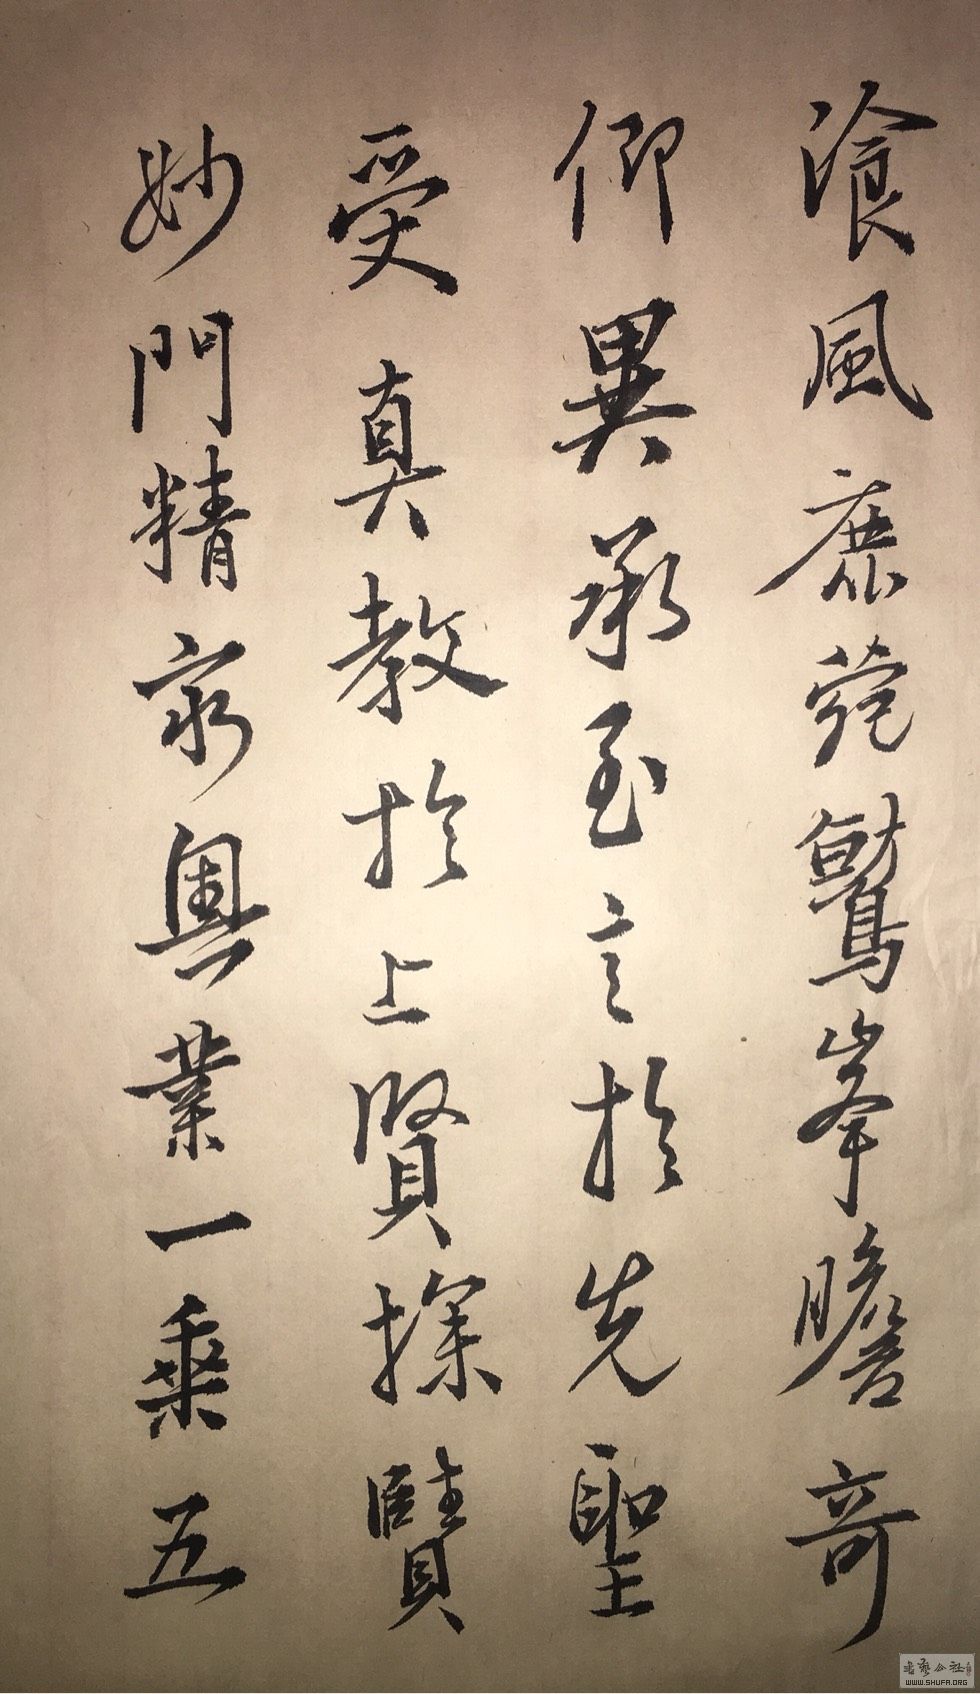 飡風鹿菀鷲峯瞻奇
仰異承至言於先聖
受真教於上賢探賾
妙門精窮奧業一乘五
書藝公社
WWW.SHUFA.ORG